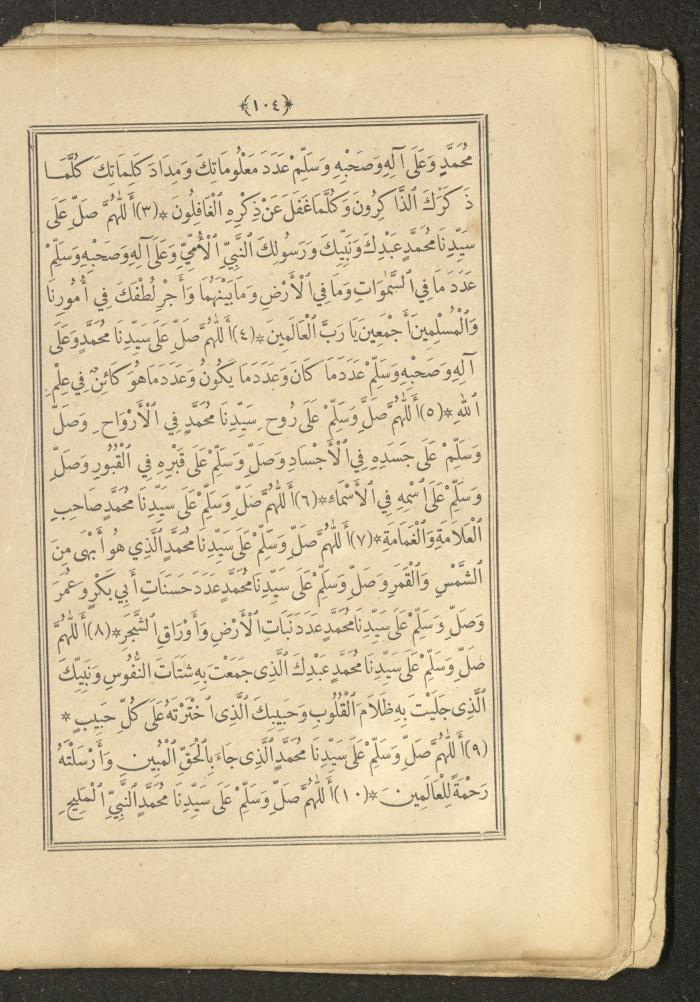 ﴿١٠٤﴾
مُحَمَّدٍ وَعَلَى آلِهِ وَصَحْبِهِ وَسَلِّمْ عَدَدَ مَعْلُومَاتِكَ وَمِدَادَ كَلِمَاتِكَ كُلَّمَا
ذَكَرَكَ ٱلذَّاكِرُونَ وَكُلَّمَا غَفَلَ عَنْ ذِكْرِهِ ٱلْغَافِلُونَ *(٣) أَللّٰهُمَّ صَلِّ عَلَى
سَيِّدِنَا مُحَمَّدٍ عَبْدِكَ وَنَبِيِّكَ وَرَسُولِكَ ٱلنَّبِيِّ ٱلْأُمِّيِّ وَعَلَى آلِهِ وَصَحْبِهِ وَسَلِّمْ
عَدَدَ مَا فِي ٱلسَّمٰوَاتِ وَمَا فِي ٱلْأَرْضِ وَمَا بَيْنَهُمَا وَأَجْرِ لُطْفَكَ فِي أُمُورِنَا
وَٱلْمُسْلِمِينَ أَجْمَعِينَ يَا رَبَّ ٱلْعَالَمِينَ *(٤) أَللّٰهُمَّ صَلِّ عَلَى سَيِّدِنَا مُحَمَّدٍ وَعَلَى
آلِهِ وَصَحْبِهِ وَسَلِّمْ عَدَدَ مَا كَانَ وَعَدَدَ مَا يَكُونُ وَعَدَدَ مَا هُوَ كَائِنٌ فِي عِلْمِ
ٱللهِ *(٥) أَللّٰهُمَّ صَلِّ وَسَلِّمْ عَلَى رُوحِ سَيِّدِنَا مُحَمَّدٍ فِي ٱلْأَرْوَاحِ وَصَلِّ
وَسَلِّمْ عَلَى جَسَدِهِ فِي ٱلْأَجْسَادِ وَصَلِّ وَسَلِّمْ عَلَى قَبْرِهِ فِي ٱلْقُبُورِ وَصَلِّ
وَسَلِّمْ عَلَى ٱسْمِهِ فِي ٱلْأَسْمَاءِ *(٦) أَللّٰهُمَّ صَلِّ وَسَلِّمْ عَلَى سَيِّدِنَا مُحَمَّدٍ صَاحِبِ
ٱلْعَلَامَةِ وَٱلْغَمَامَةِ *(٧) أَللّٰهُمَّ صَلِّ وَسَلِّمْ عَلَى سَيِّدِنَا مُحَمَّدٍ ٱلَّذِي هُوَ أَبْهَى مِنَ
ٱلشَّمْسِ وَٱلْقَمَرِ وَصَلِّ وَسَلِّمْ عَلَى سَيِّدِنَا مُحَمَّدٍ عَدَدَ حَسَنَاتِ أَبِي بَكْرٍ وَعُمَرَ
وَصَلِّ وَسَلِّمْ عَلَى سَيِّدِنَا مُحَمَّدٍ عَدَدَ نَبَاتِ ٱلْأَرْضِ وَأَوْرَاقِ ٱلشَّجَرِ *(٨) أَللّٰهُمَّ
صَلِّ وَسَلِّمْ عَلَى سَيِّدِنَا مُحَمَّدٍ عَبْدِكَ ٱلَّذِى جَمَعْتَ بِهِ شَتَاتَ ٱلنُّفُوسِ وَنَبِيِّكَ
ٱلَّذِى جَلَيْتَ بِهِ ظَلَامَ ٱلْقُلُوبِ وَحَبِيبِكَ ٱلَّذِى ٱخْتَرْتَهُ عَلَى كُلِّ حَبِيبٍ *
(٩) أَللّٰهُمَّ صَلِّ وَسَلِّمْ عَلَى سَيِّدِنَا مُحَمَّدٍ ٱلَّذِى جَاءَ بِٱلْحَقِّ ٱلْمُبِينِ وَأَرْسَلْتَهُ
رَحْمَةً لِلْعَالَمِينَ *(١٠) أَللّٰهُمَّ صَلِّ وَسَلِّمْ عَلَى سَيِّدِنَا مُحَمَّدٍ ٱلنَّبِيِّ ٱلْمَلِيحِ